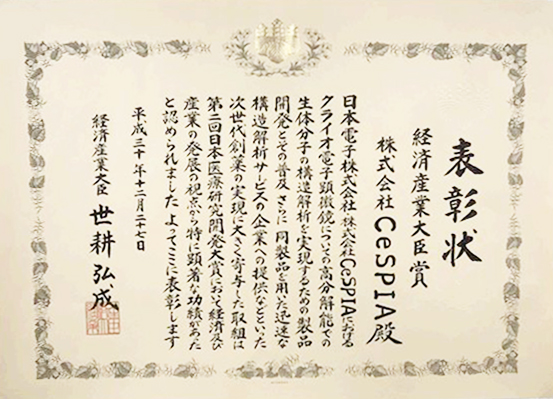 表彰状
経済産業大臣賞
株式会社CeSPIA殿
日本電子株式会社・株式会社CeSPIAにおける
クライオ電子顕微鏡についての高分解能での
生体分子の構造解析を実現するための製品
開発とその普及さらに同製品を用いた迅速な
構造解析サービスの企業への提供などといった
次世代創薬の実現に大きく寄与した取組は
第二回日本医療研究開発大賞において経済及び
産業の発展の視点から特に顕著な功績があった
と認められました よってここに表彰します
平成三十年十二月二十七日
経済産業大臣 世耕弘成